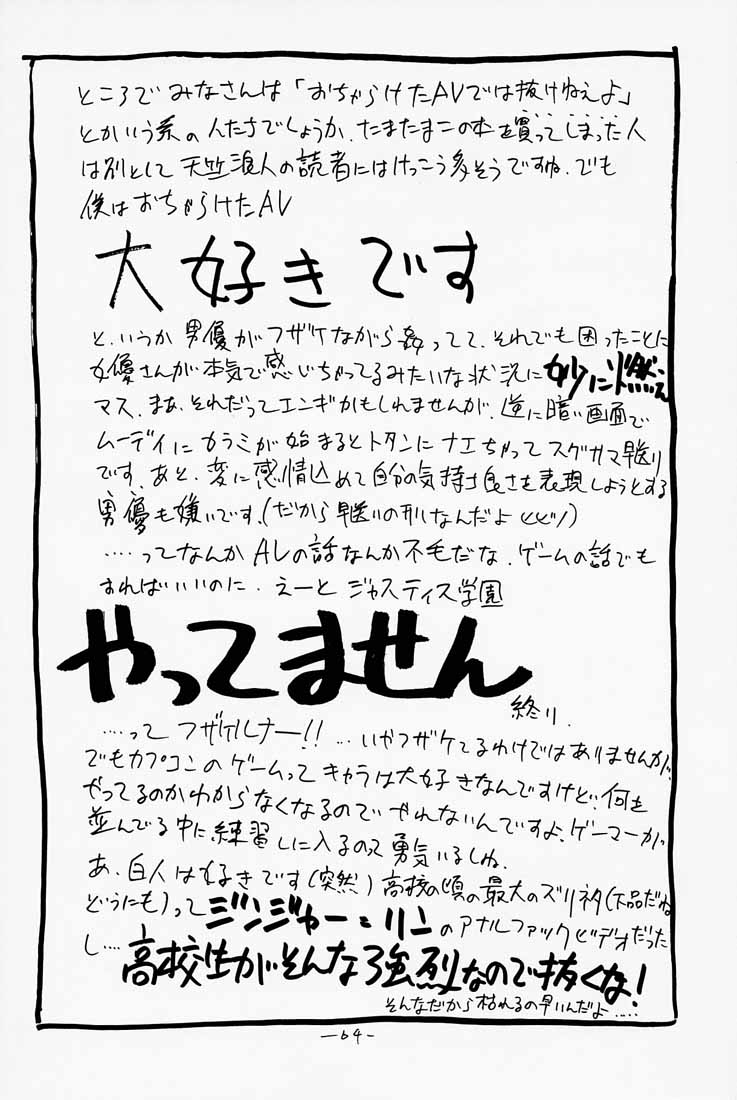 ところでみなさんは「おちゃらけたAVでは抜けねえよ」
とかいう系の人たちでしょうか、たまたまこの本を買ってしまった人
は別として天竺浪人の読者にはけっこう多そうですね。でも
僕はおちゃらけたAV
大好きです
と、いうか男優がフザケながら姦ってて、それでも困ったことに
女優さんが本気で感じちゃってるみたいな状況に妙に燃え
マス、まあ、それだってエンギかもしれませんが、逆に暗い画面で
ムーディにカラミが始まるとトタンにナエちゃってスグサマ早送り
です、あと、変に感情込めて自分の気持ち良さを表現しようとする
男優も嫌いです、(だから早送りの刑なんだよ
‥‥ってなんかAVの話なんか不毛だな、ゲームの話でも
すればいいのに、えーと ジャスティス学園
やってません
終り、
‥‥って フザケルナー!! …いやフザケてるわけではありませんが、
でもカプコンのゲームってキャラは大好きなんですけど‥何を
やってるのかわからなくなるのでやれないんですよ、ゲーマーがっ
並んでる中に練習しに入るのって勇気いるしね、
あ、白人は好きです(突然)高校の頃の最大のズリネタ(下品だね
どうにも)ってジンジャー=リンのアナルファックビデオだった
し‥‥高校生がそんな強烈なので抜くな!
そんなだから枯れるの早いんだよ‥‥
―64-